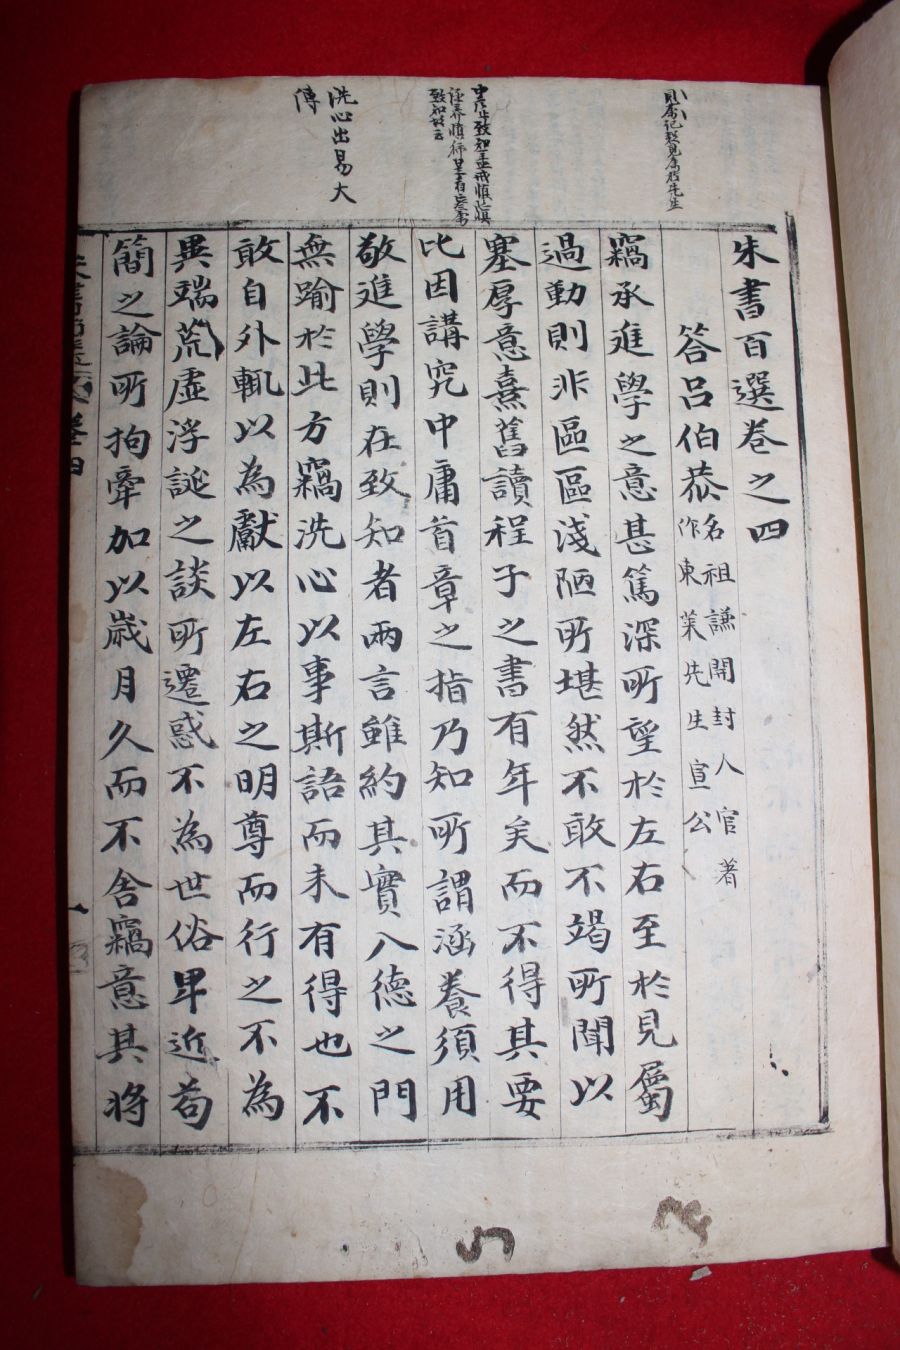 朱書百選卷之四
答呂伯恭名祖謙開封人官著
作東萊先生宣公
竊承進學之意甚篤深所望於左右至於見屬
過動則非區區淺陋所堪然不敢不竭所聞以
塞厚意熹舊讀程子之書有年矣而不得其要
比因講究中庸首章之指乃知所謂涵養須用
敬進學則在致知者兩言雖約其實入德之門
無踰於此方竊洗心以事斯語而未有得也不
敢自外輒以為獻以左右之明尊而行之不為
異端荒虛浮誕之談所遷惑不為世俗卑近苟
簡之論所拘牽加以歲月久而不舍竊意其將
洗心出易大
傳